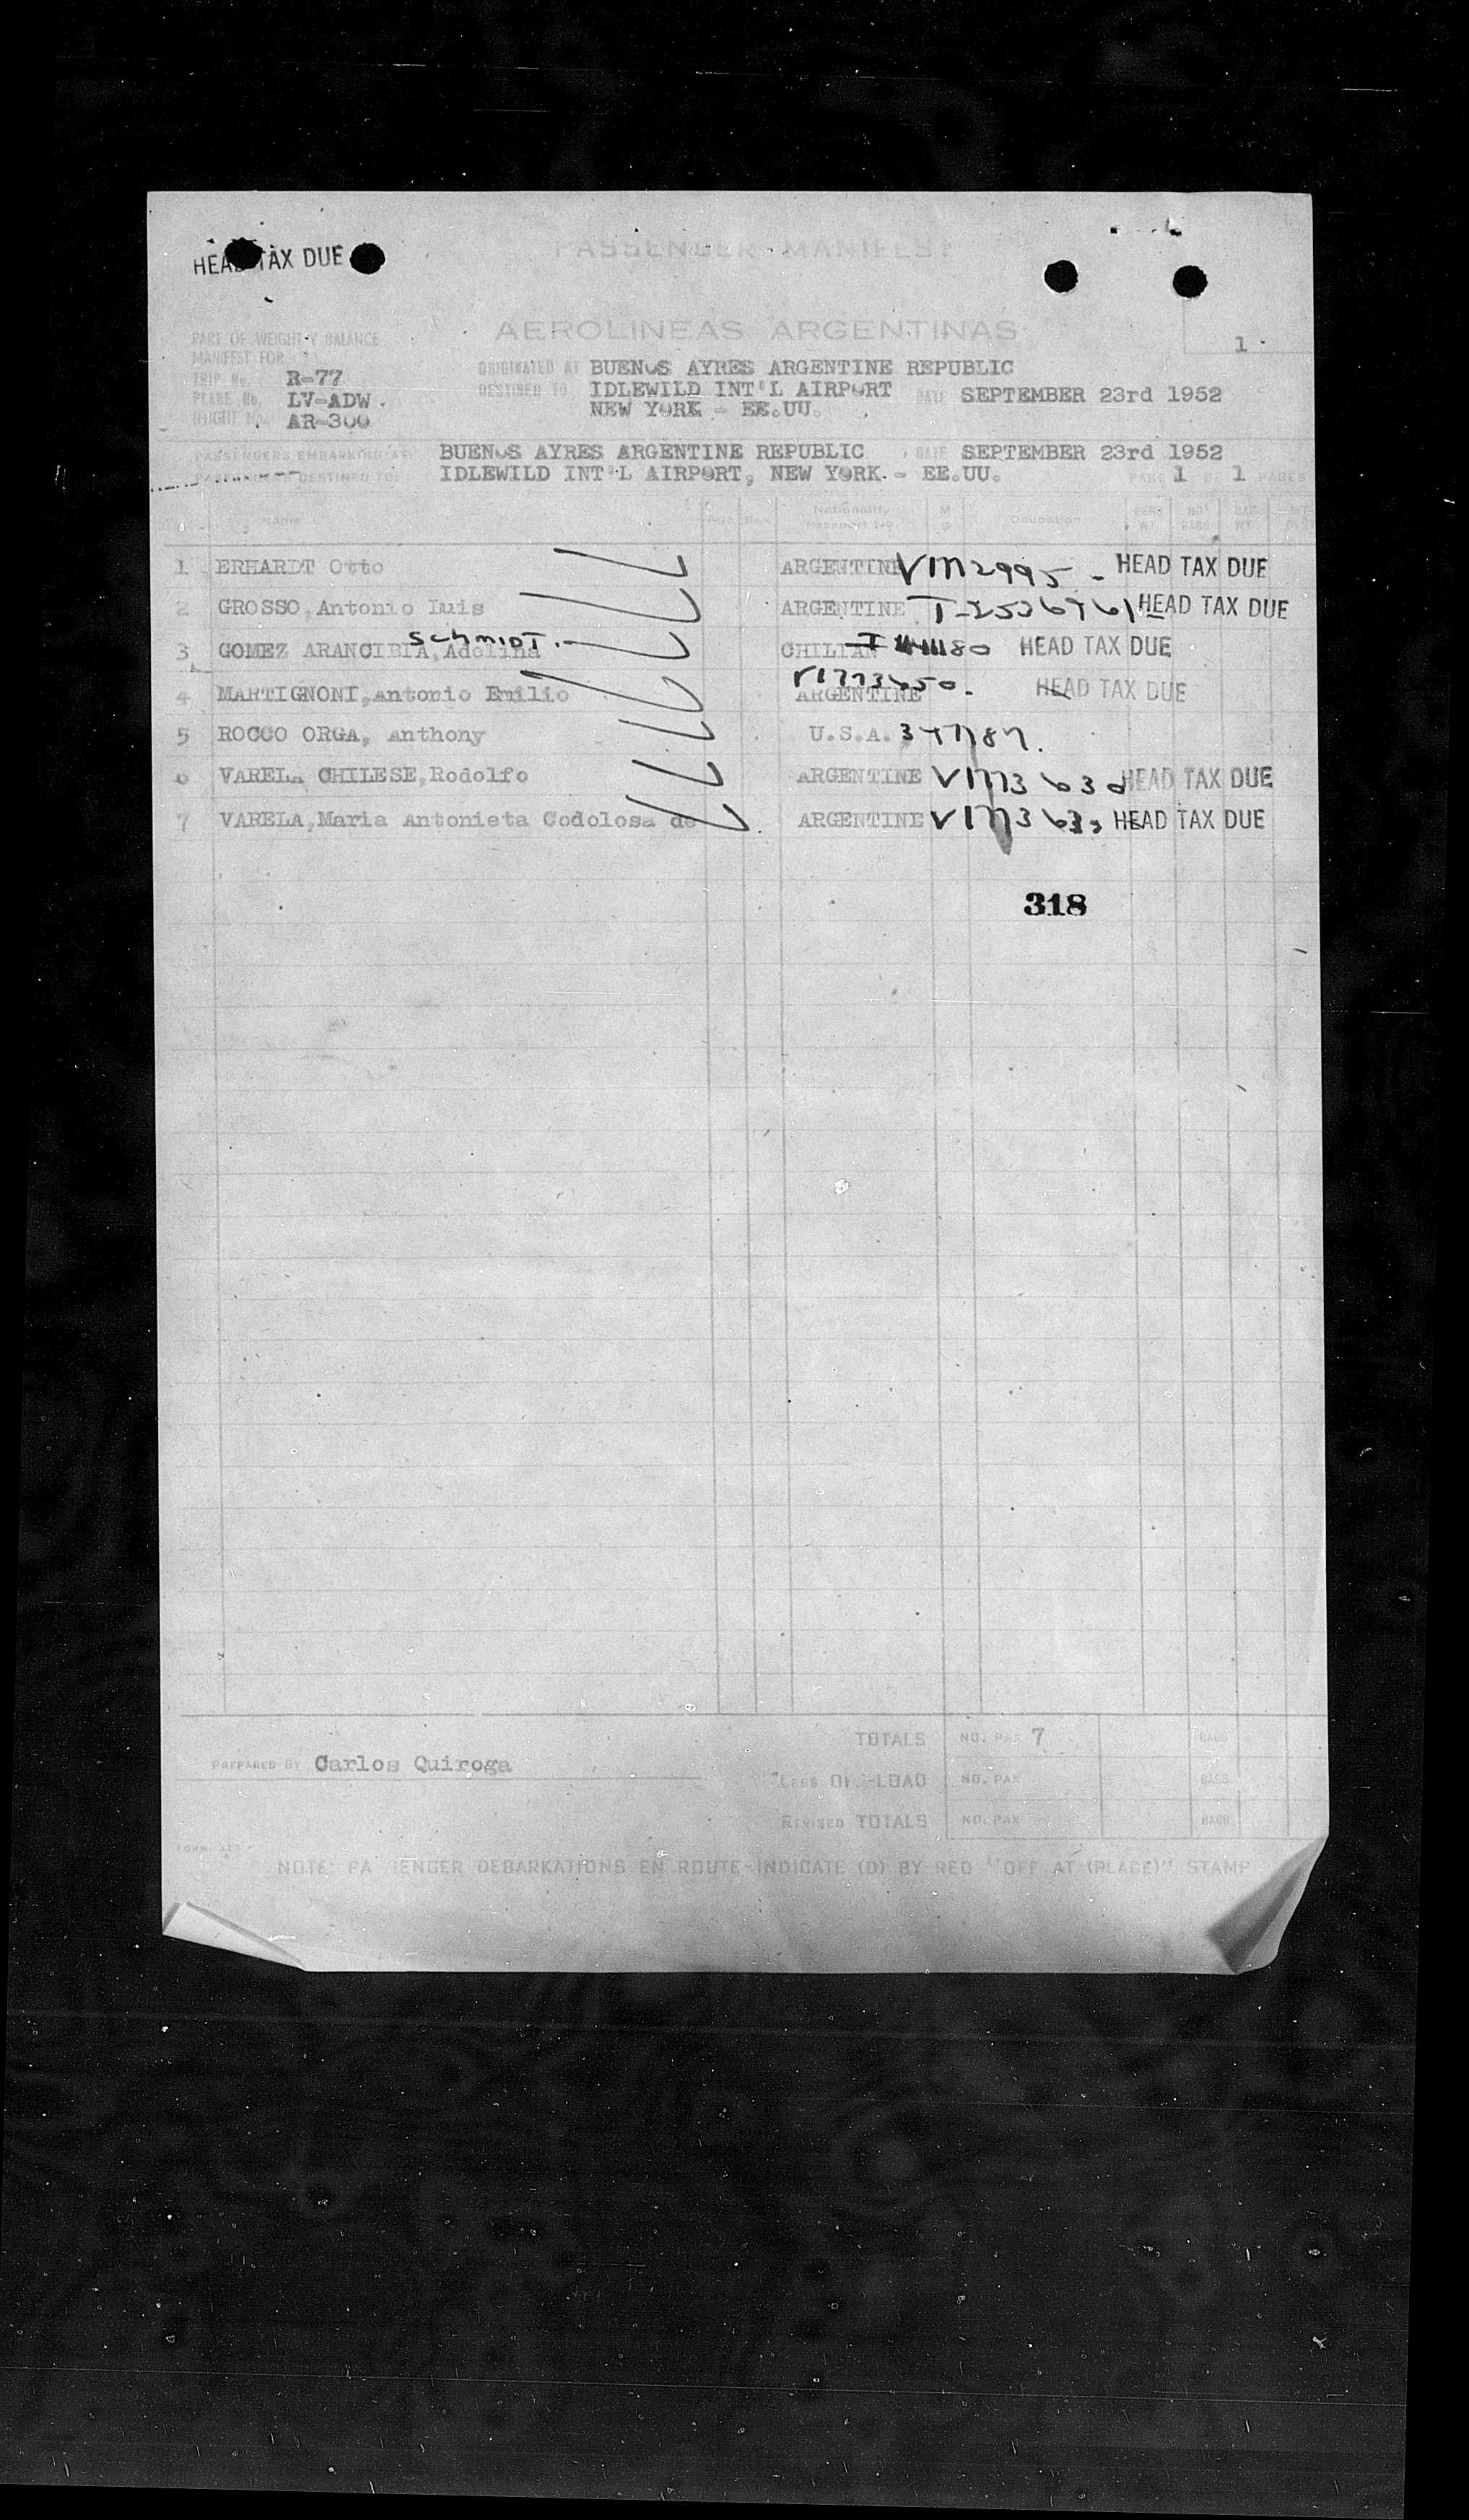 HEAD TAX DUE
PASSENGER MANIFEST
AEROLINEAS ARGENTINAS
PART OF WEIGHT Y BALANCE
MANIFEST FOR
1
TRIP No. R-77
PLANE No. LV-ADW.
FLIGHT No. AR-300
ORIGINATED AT BUENOS AYRES ARGENTINE REPUBLIC
DESTINED TO IDLEWILD INT'L AIRPORT DATE SEPTEMBER 23rd 1952
NEW YORK - EE.UU.
PASSENGERS EMBARKING AT BUENOS AYRES ARGENTINE REPUBLIC DATE SEPTEMBER 23rd 1952
PASSENGERS DESTINED TO: IDLEWILD INT'L AIRPORT, NEW YORK.- EE.UU. PAGE 1 OF 1 PAGES
Name Age Sex Nationality Passport No Ocupation PERS WT. NO BAGS BAG WT.
1 ERHARDT Otto ARGENTINE HEAD TAX DUE
2 GROSSO,Antonio Luis ARGENTINE HEAD TAX DUE
Schmidt.
3 GOMEZ ARANCIBIA,Adelina CHILIAN HEAD TAX DUE
4 MARTIGNONI,Antonio Emilio ARGENTINE HEAD TAX DUE
5 ROCCO ORGA, Anthony U.S.A.
6 VARELA CHILESE,Rodolfo ARGENTINE HEAD TAX DUE
7 VARELA,Maria Antonieta Codolosa de ARGENTINE HEAD TAX DUE
318
TOTALS NO. PAX 7 BAGS
PREPARED BY Carlos Quiroga
LESS OFF-LOAD NO. PAX BAGS
REVISED TOTALS NO. PAX BAGS
NOTE: PASSENGER DEBARKATIONS EN ROUTE-INDICATE (D) BY RED "OFF AT (PLACE)" STAMP